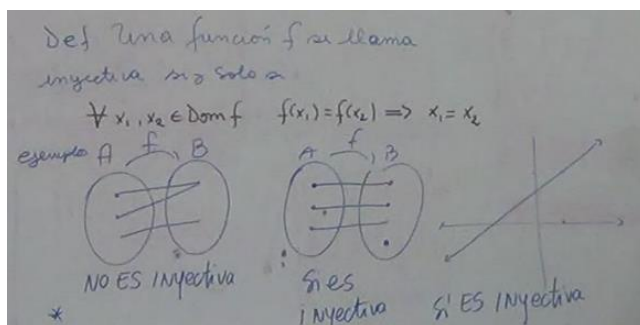 Def Una función f se llama
inyectiva si y solo si
∀ x₁, x₂ ∈ Dom f   f(x₁) = f(x₂) => x₁ = x₂
ejemplo A f B
A f B
NO ES INyectiva
Si es
INyectiva
Sí ES INyectiva
*